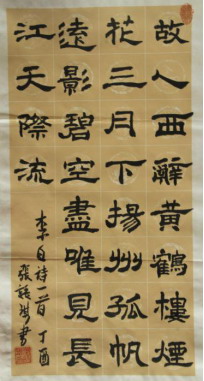 故人西辭黃鶴樓煙
花三月下揚州孤帆
遠影碧空盡唯見長
江天際流
李白詩一首 丁酉
張
書